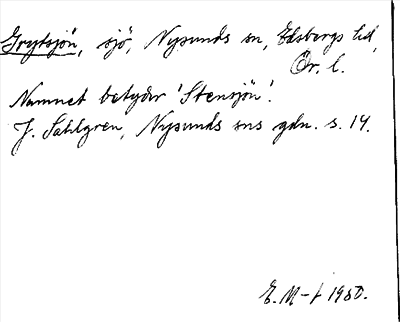 Grytsjön, sjö, Nysunds sn, Edsbergs hd,
Ör. l.
Namnet betyder 'Stensjön'.
J. Sahlgren, Nysunds sns gdn. s. 14.
E. M-t 1980.